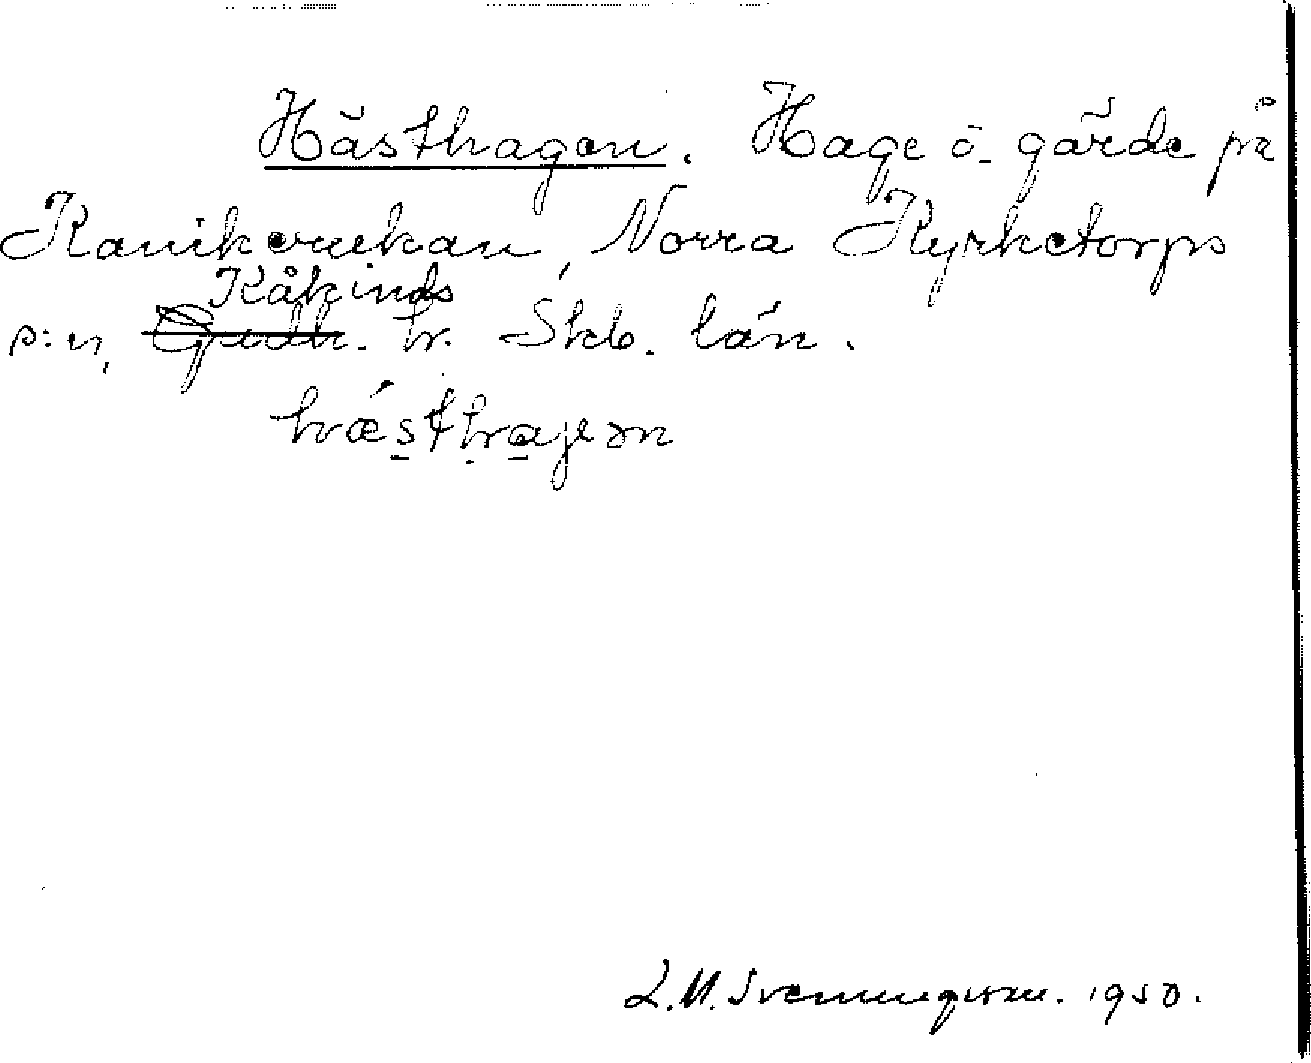 Hästhagen. Hage o. gärde på
Kanikeruckan, Norra Kyrketorps
Kåkinds
s:n, Gudh. hr. Skb. län.
hästhajen
L.M. Svenungsson. 1950.